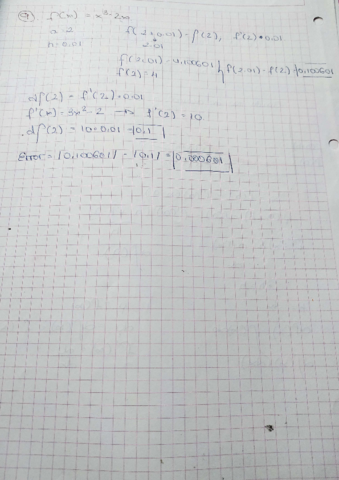 7 f(x) = x³-2x
a=2 f(2+0.01)-f(2), f'(2)•0.01
h=0.01 2.01
f(2.01)=4.100601
f(2)=4 f(2.01)-f(2)=0.100601
df(2)=f'(2)•0.01
f'(x)=3x²-2 → f'(2)=10
df(2)=10•0.01=0.1
Error=|0.100601|-|0.1|=0.000601